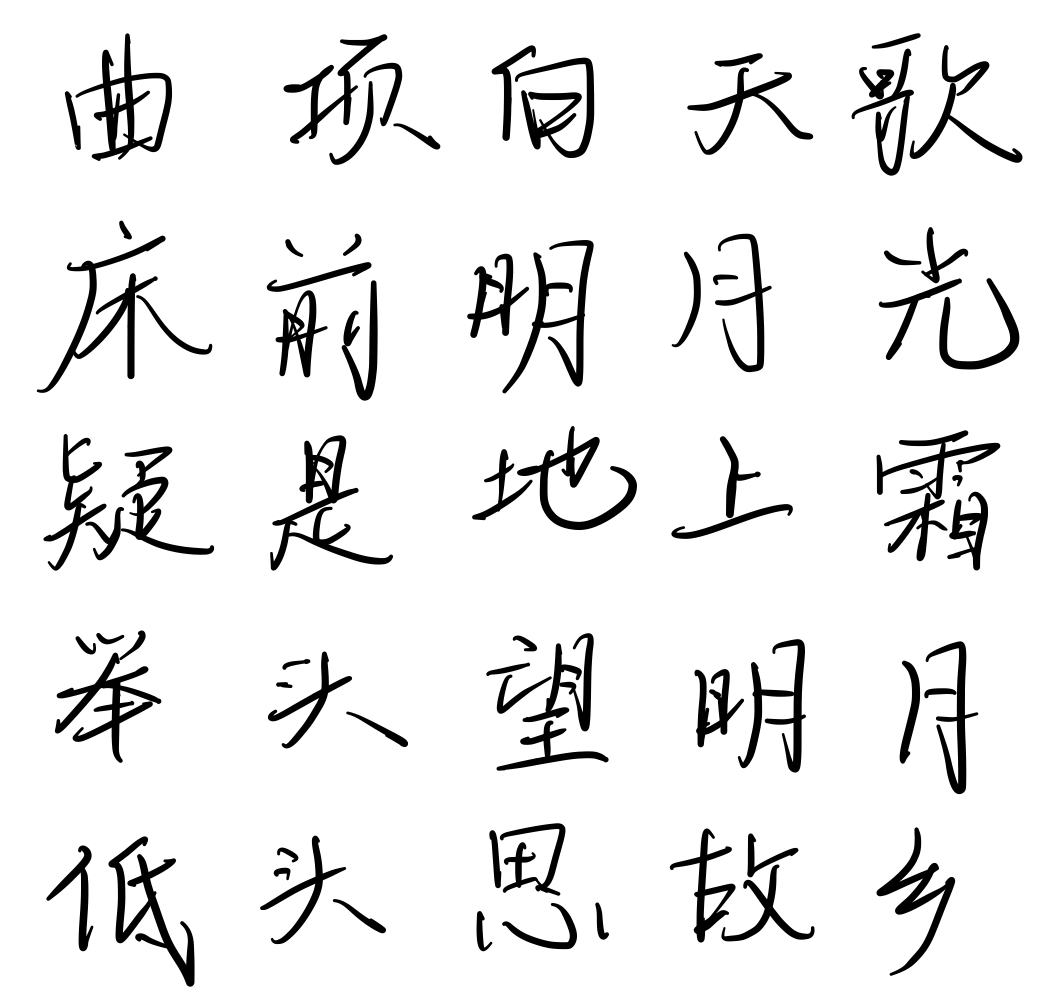 曲项向天歌
床前明月光
疑是地上霜
举头望明月
低头思故乡